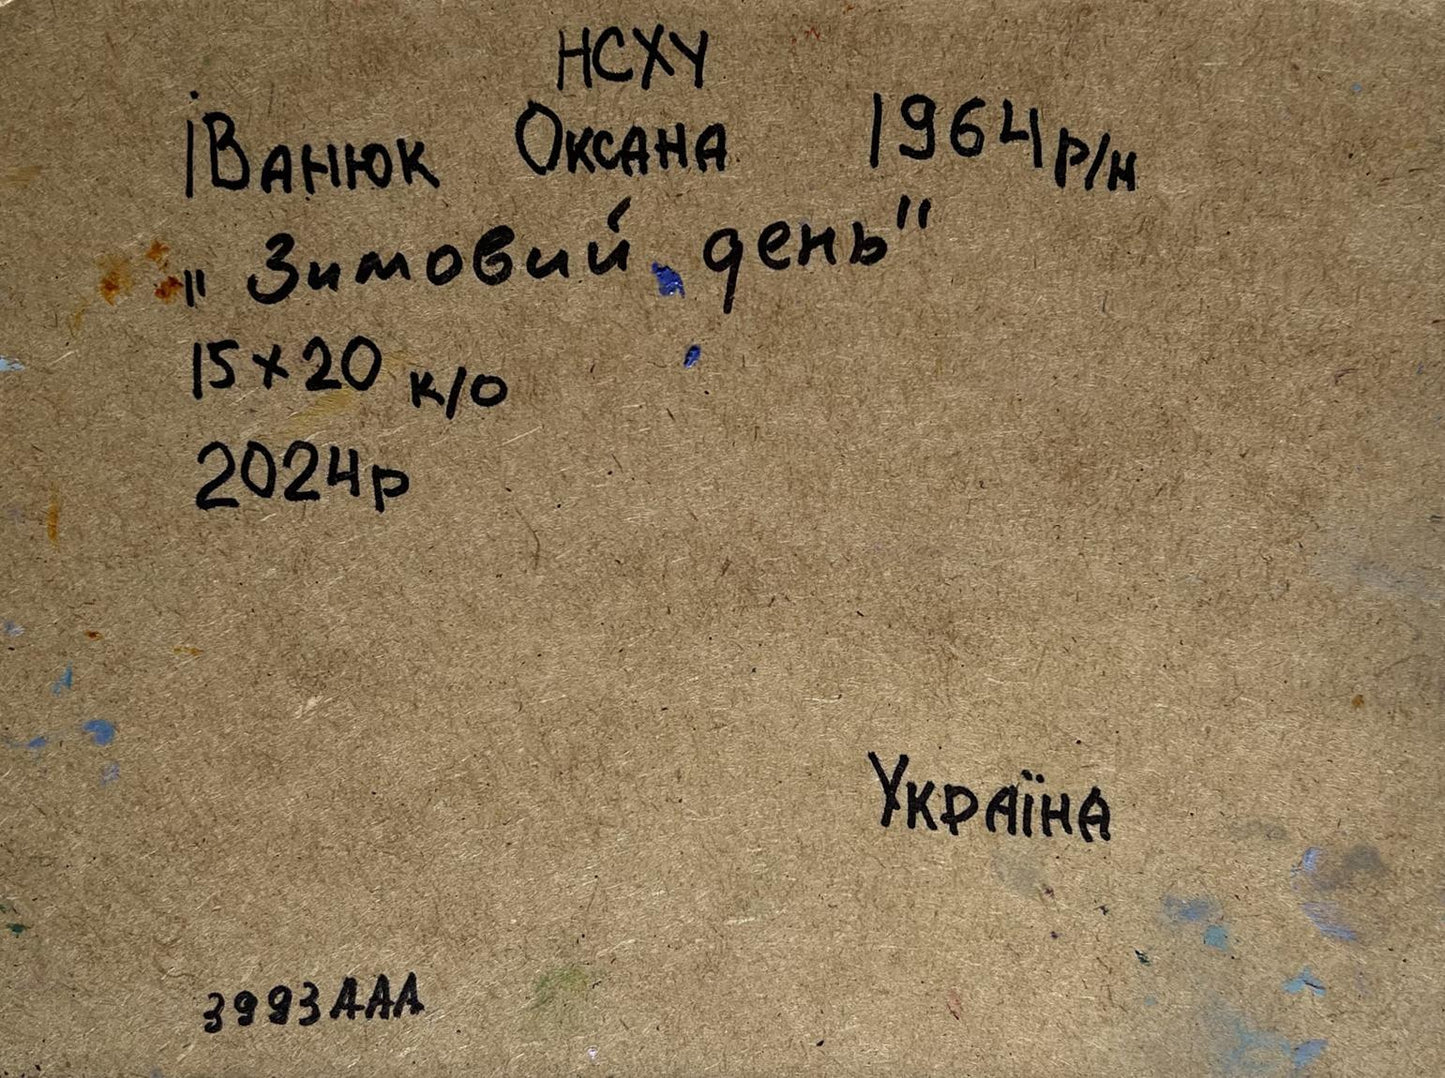 НСХУ
Іванюк Оксана 1964 р/н
„Зимовий день"
15х20 к/о
2024р
Україна
3993ААА